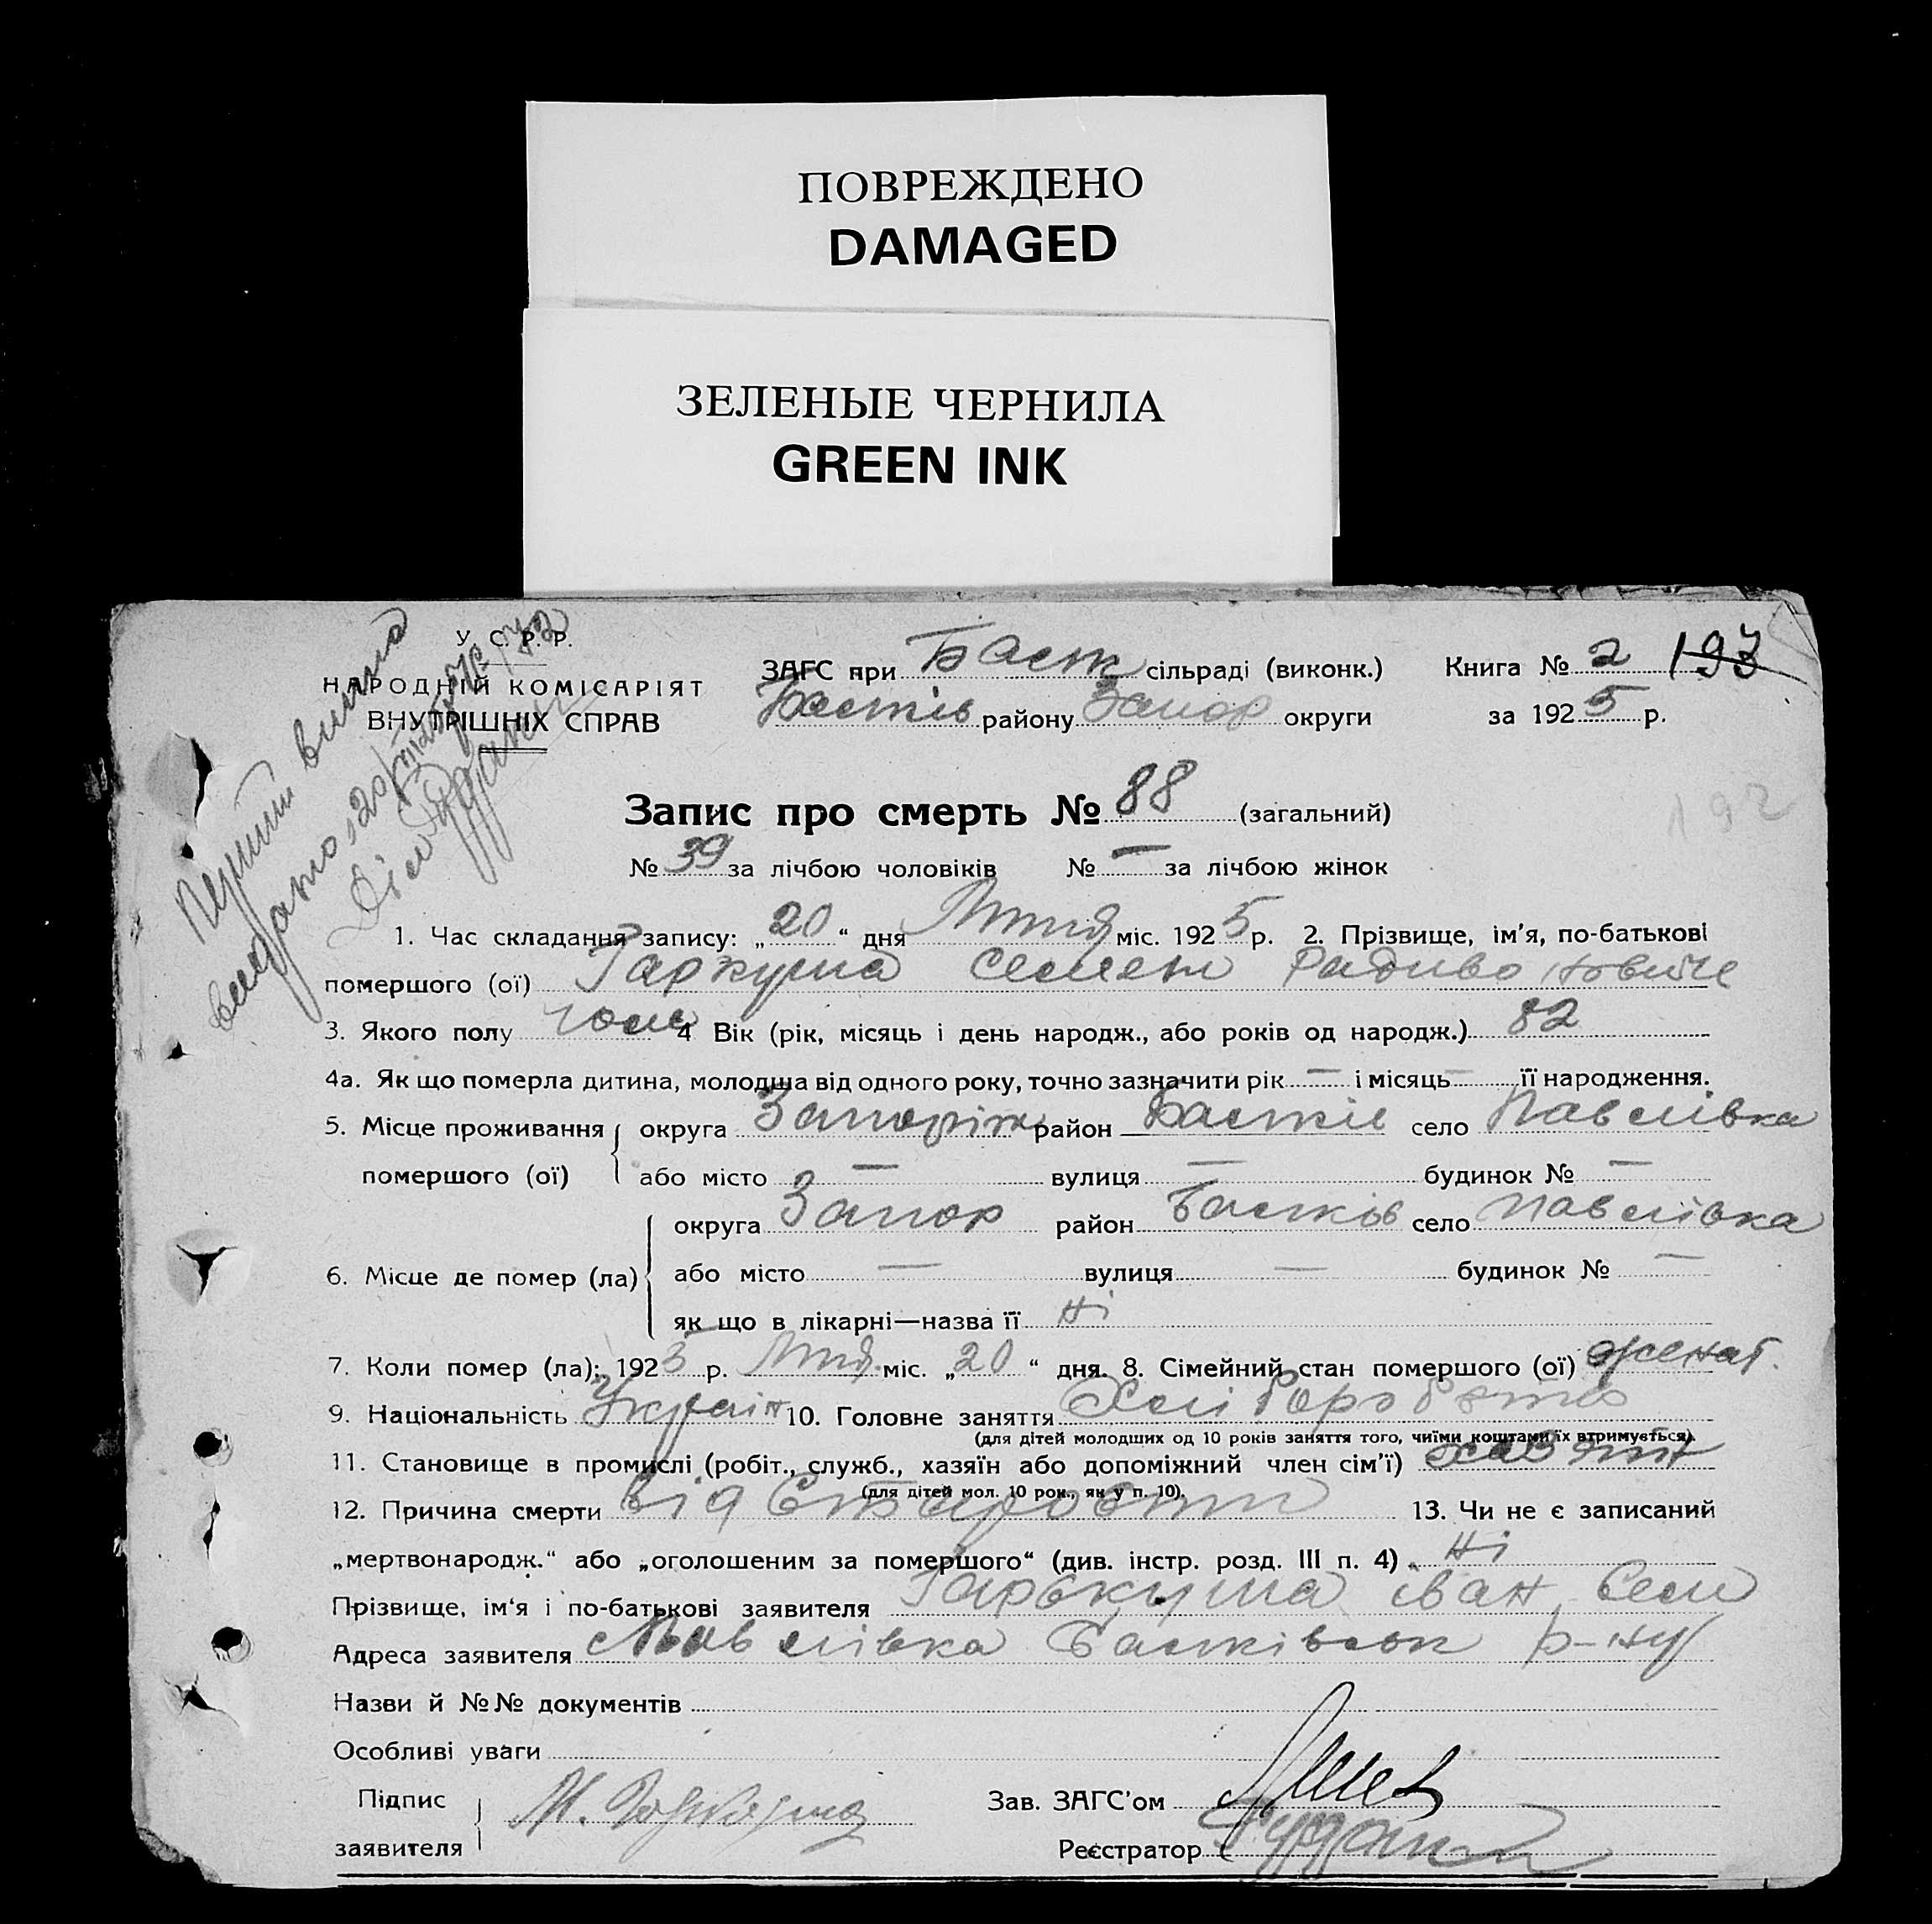 ПОВРЕЖДЕНО
DAMAGED
ЗЕЛЕНЫЕ ЧЕРНИЛА
GREEN INK
У. С. Р. Р.
НАРОДНІЙ КОМІСАРІЯТ
ВНУТРІШНІХ СПРАВ
ЗАГС при Баст сільраді (виконк.) Книга № 2 193
району Запор округи за 1925 р.
Запис про смерть № 88 (загальний)
192
№ 39 за лічбою чоловіків № — за лічбою жінок
1. Час складання запису: „20“ дня міс. 1925 р. 2. Прізвище, ім'я, по-батькові
помершого (ої) Гаркуша Семен
3. Якого полу чол 4 Вік (рік, місяць і день народж., або років од народж.) 82
4а. Як що померла дитина, молодша від одного року, точно зазначити рік — і місяць — її народження.
5. Місце проживання округа Запоріж район село Павлівка
помершого (ої) або місто — вулиця — будинок № —
округа Запор район село Павлівка
6. Місце де помер (ла) або місто — вулиця — будинок № —
як що в лікарні—назва її Ні
7. Коли помер (ла): 1925 р. міс. „20“ дня. 8. Сімейний стан помершого (ої) женат.
9. Національність Україн 10. Головне заняття Хлібороб
(для дітей молодших од 10 років заняття того, чиїми коштами їх втримується).
11. Становище в промислі (робіт., служб., хазяїн або допоміжний член сім'ї)
(для дітей мол. 10 рок., як у п. 10).
12. Причина смерти від Старости 13. Чи не є записаний
„мертвонародж.“ або „оголошеним за помершого“ (див. інстр. розд. III п. 4) Ні
Прізвище, ім'я і по-батькові заявителя Гаркуша іван Сем
Адреса заявителя Павлівка р-ну
Назви й №№ документів
Особливі уваги
Підпис
заявителя
Зав. ЗАГС'ом
Реєстратор